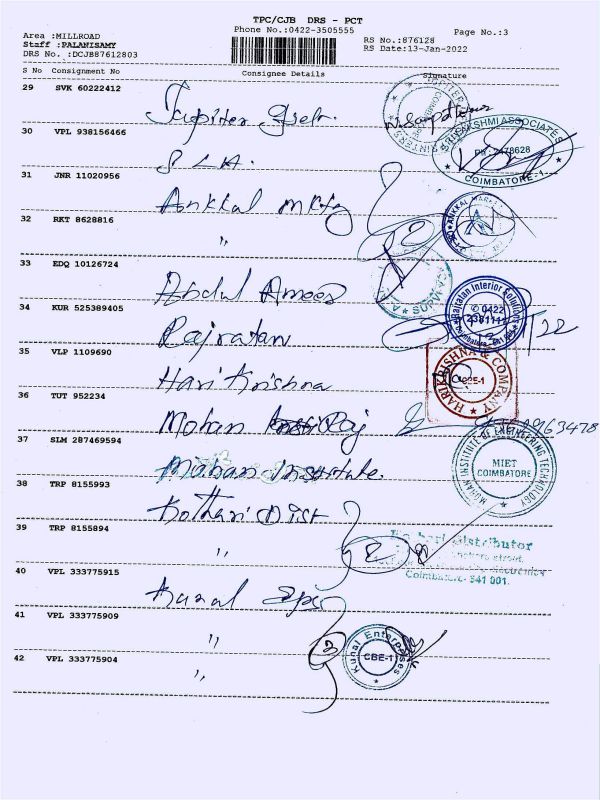 TPC/CJB DRS - PCT
Area :MILLROAD
Phone No.:0422-3505555
Page No.:3
Staff :PALANISAMY
RS No.:876128
DRS No. :DCJB87612803
RS Date:13-Jan-2022
S No Consignment No Consignee Details Signature
29 SVK 60222412
Jupiter
30 VPL 938156466
ASSOCIATES
2478628
COIMBATORE-1
S L A.
31 JNR 11020956
Ankkal mktg
ANKKAL
32 RKT 8628816
"
33 EDQ 10126724
Abdul
34 KUR 525389405
Rajratan Interior Solutions
0422
2381111
Rajratan
35 VLP 1109690
HARIKRISHNA & COMPANY
CBE-1
Hari Krishna
36 TUT 952234
Mohan Raj
37 SLM 287469594
MOHAN INSTITUTE OF ENGINEERING TECHNOLOGY
MIET
COIMBATORE
Mohan Institute.
38 TRP 8155993
Kothari Dist
39 TRP 8155894
"
2
Distributor
street,
Coimbatore- 641 001.
40 VPL 333775915
Kunal
41 VPL 333775909
"
3
Kunal Enterprises
CBE-1
42 VPL 333775904
"